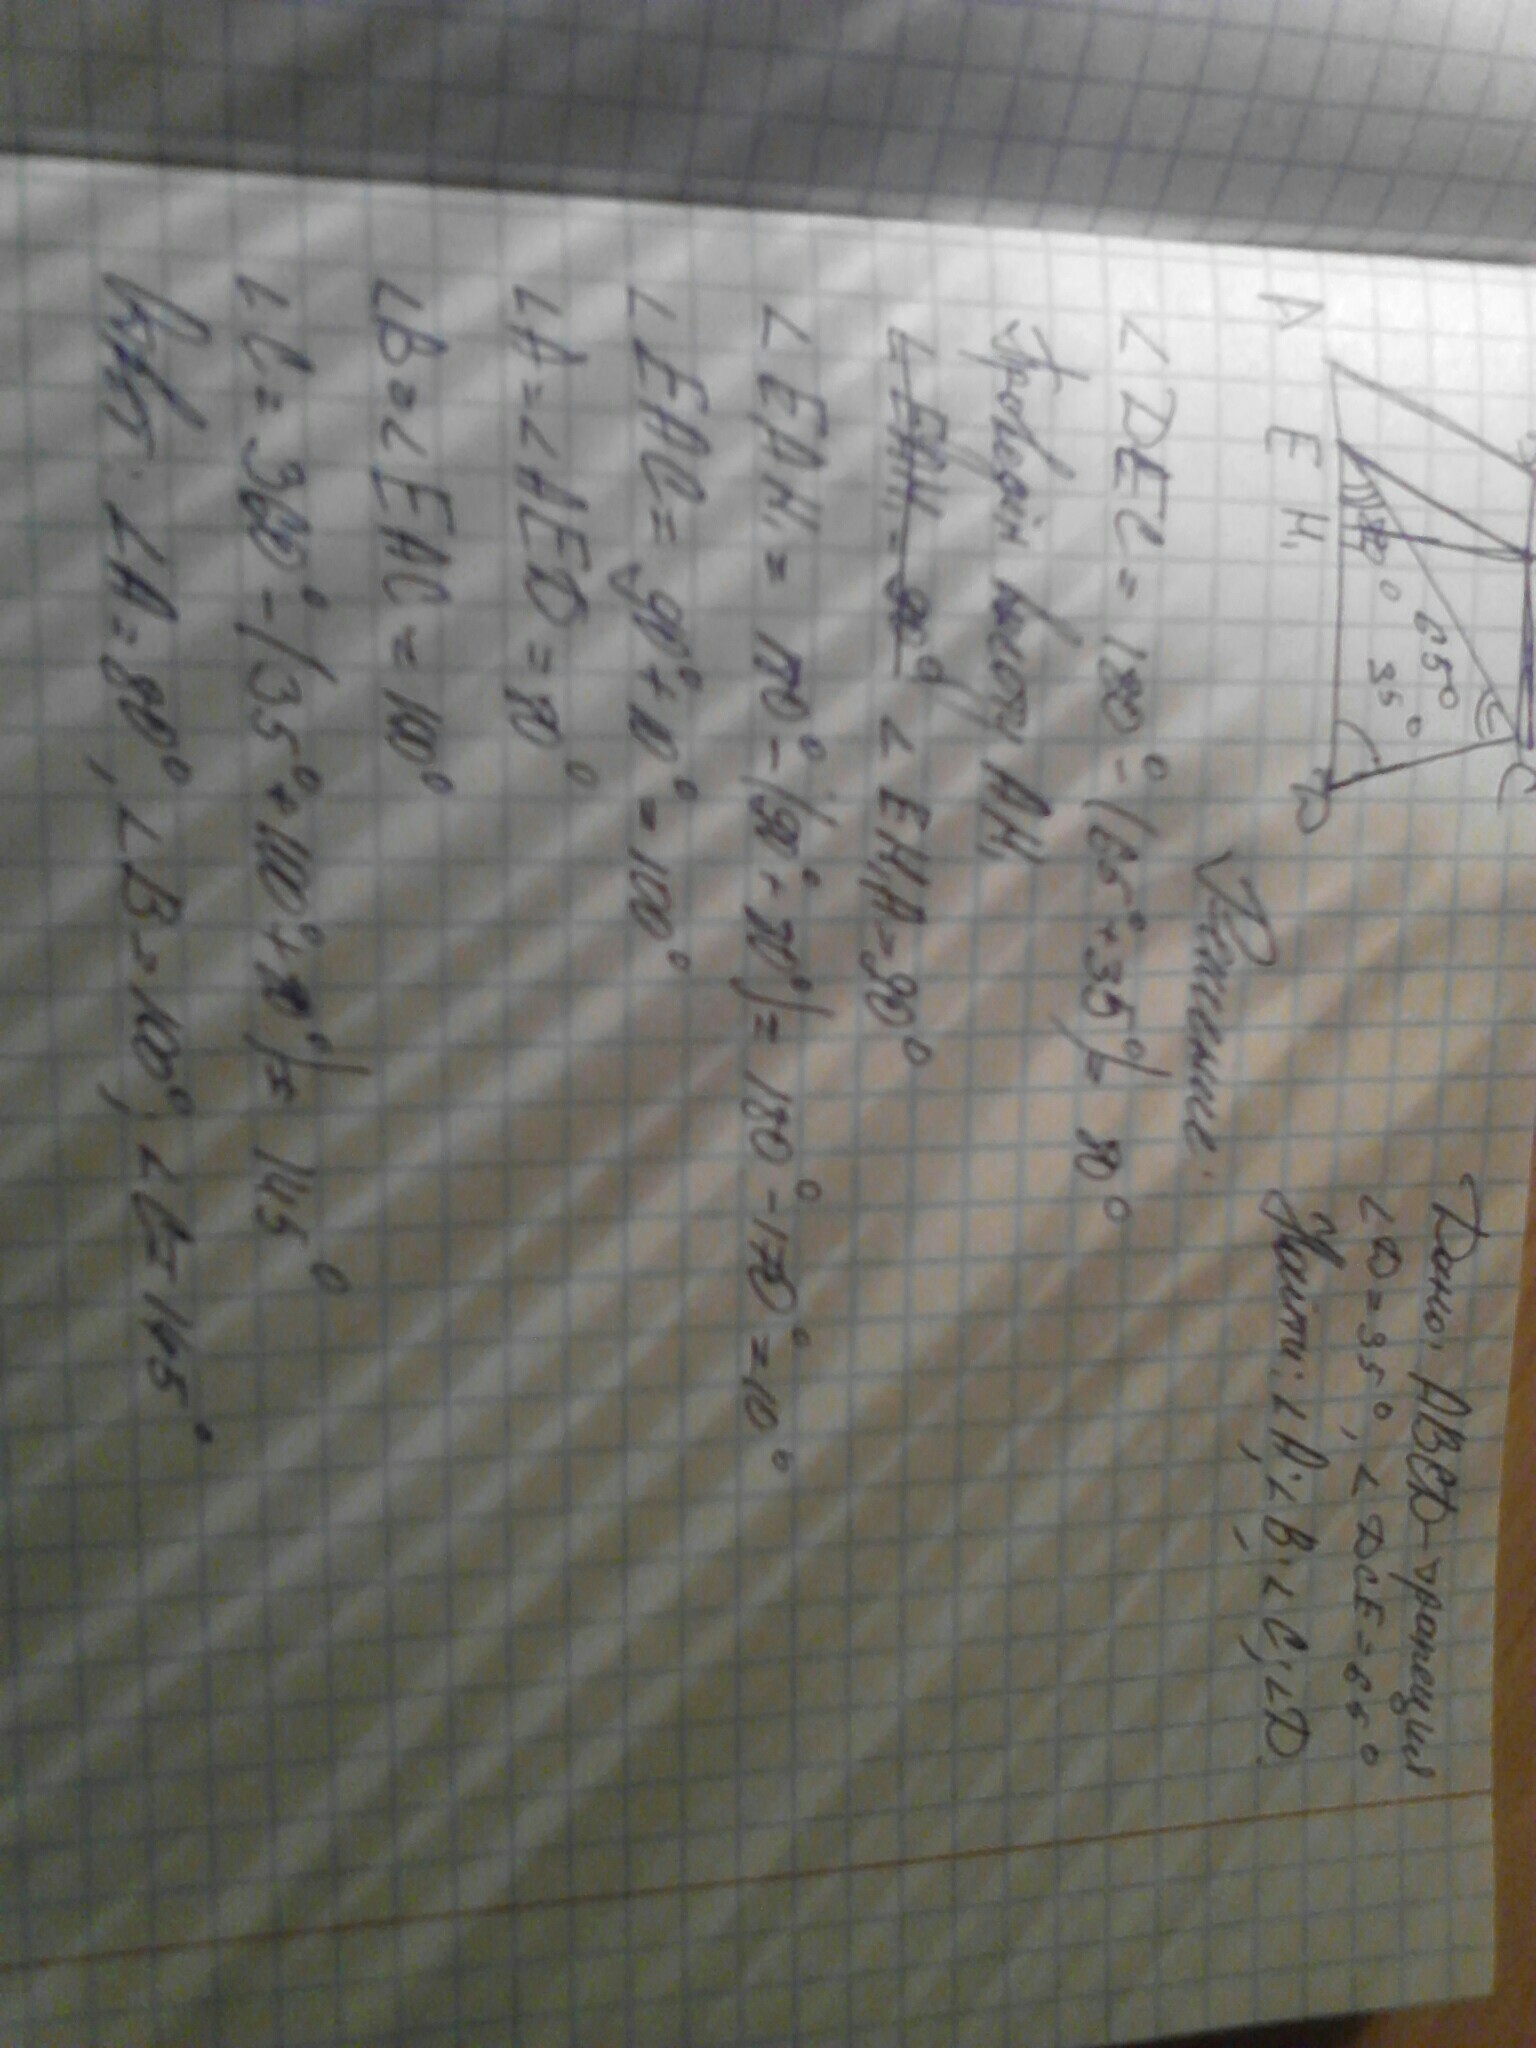 Дано: ABCD-трапеция
∠D=35°, ∠DCE=65°
Найти: ∠A; ∠B; ∠C; ∠D.
C
65°
35°
80°
A E H₁ D
Решение:
∠DEC = 180° - (65°+35°)= 80°
Проведём высоту AH₁
∠EH₁A=90°
∠EAH₁ = 180° - (90° + 80°) = 180° - 170° = 10°
∠EAC = 90° + 10° = 100°
∠A = ∠AED = 80°
∠B = ∠EAC = 100°
∠C = 360° - (35° + 100° + 80°)= 145°
Ответ: ∠A = 80°, ∠B = 100°, ∠C = 145°.